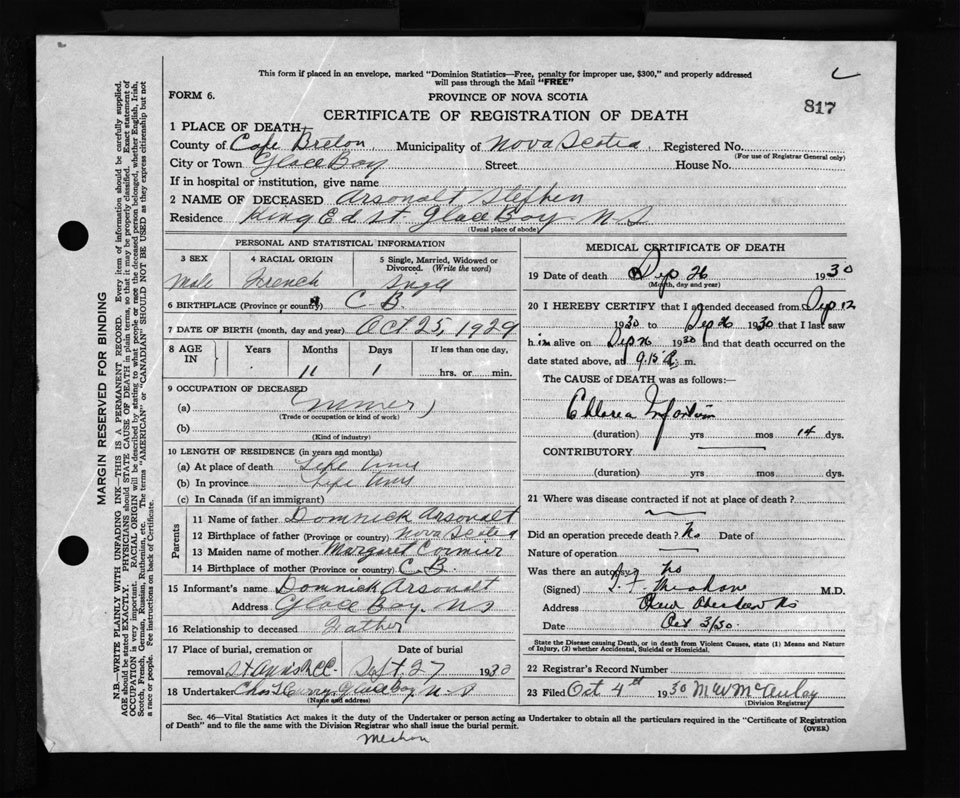 This form if placed in an envelope, marked "Dominion Statistics—Free, penalty for improper use, $300," and properly addressed
will pass through the Mail "FREE"
FORM 6.
PROVINCE OF NOVA SCOTIA
817
CERTIFICATE OF REGISTRATION OF DEATH
1 PLACE OF DEATH—
County of Cape Breton Municipality of Nova Scotia Registered No.
(For use of Registrar General only)
City or Town Glace Bay Street House No.
If in hospital or institution, give name
2 NAME OF DECEASED Arsonalt Stephen
Residence King Ed St Glace Bay N S
(Usual place of abode)
PERSONAL AND STATISTICAL INFORMATION
3 SEX 4 RACIAL ORIGIN 5 Single, Married, Widowed or
Divorced. (Write the word)
Male French Single
6 BIRTHPLACE (Province or country) C. B.
7 DATE OF BIRTH (month, day and year) Oct 25, 1929
8 AGE IN Years Months Days If less than one day,
11 1 hrs. or min.
9 OCCUPATION OF DECEASED
(a)
(Trade or occupation or kind of work)
(b)
(Kind of industry)
10 LENGTH OF RESIDENCE (in years and months)
(a) At place of death Life
(b) In province Life
(c) In Canada (if an immigrant)
Parents
11 Name of father Domnick Arsonalt
12 Birthplace of father (Province or country) Nova Scotia
13 Maiden name of mother Margaret Cormier
14 Birthplace of mother (Province or country) C. B.
15 Informant's name Domnick Arsonalt
Address Glace Bay. NS
16 Relationship to deceased Father
17 Place of burial, cremation or Date of burial
removal St Anns RCC. Sept 27 1930
18 Undertaker Chas T Curry Glace Bay N-S
(Name and address)
MEDICAL CERTIFICATE OF DEATH
19 Date of death Sep 26 1930
(Month, day and year)
20 I HEREBY CERTIFY that I attended deceased from Sep 12
1930 to Sep 26 1930 that I last saw
h im alive on Sep 26 1930 and that death occurred on the
date stated above, at 9.15 a. m.
The CAUSE OF DEATH was as follows:—
Cholera Infantum
(duration) yrs mos 14 dys.
CONTRIBUTORY
(duration) yrs mos dys.
21 Where was disease contracted if not at place of death?
Did an operation precede death? No Date of
Nature of operation
Was there an autopsy No
(Signed) M.D.
Address
Date Oct 3/30
State the Disease causing Death, or in death from Violent Causes, state (1) Means and Nature
of Injury, (2) whether Accidental, Suicidal or Homicidal.
22 Registrar's Record Number
23 Filed Oct 4th 1930
(Division Registrar)
Sec. 46—Vital Statistics Act makes it the duty of the Undertaker or person acting as Undertaker to obtain all the particulars required in the "Certificate of Registration
of Death" and to file the same with the Division Registrar who shall issue the burial permit.
(OVER)
MARGIN RESERVED FOR BINDING
N.B.—WRITE PLAINLY WITH UNFADING INK—THIS IS A PERMANENT RECORD. Every item of information should be carefully supplied.
AGE should be stated EXACTLY. PHYSICIANS should STATE CAUSE OF DEATH in plain terms, so that it may be properly classified. Exact statement of
OCCUPATION is very important. RACIAL ORIGIN will be described by stating to what people or race the deceased person belonged, whether English, Irish,
Scotch, French, German, Russian, Ruthenian, etc. The terms "AMERICAN" or "CANADIAN" SHOULD NOT BE USED as they express citizenship but not
a race or people. See instructions on back of Certificate.